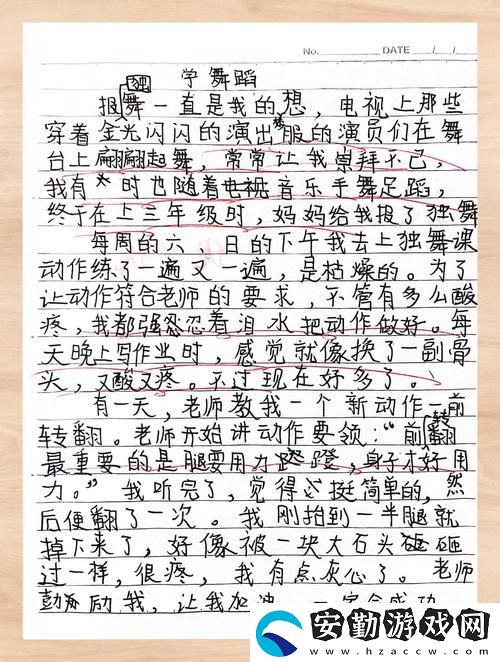 No. DATE / /
学舞蹈
报独舞一直是我的想，电视上那些
穿着金光闪闪的演出服的演员们在舞
台上翩翩起舞，常常让我崇拜不已，
我有时也随着电视音乐手舞足蹈，
终于在上三年级时，妈妈给我报了独舞
每周的六、日的下午我去上独舞课
动作练了一遍又一遍，是枯燥的。为了
让动作符合老师的要求，不管有多么酸
疼，我都强忍忍着泪水把动作做好。每
天晚上写作业时，感觉就像换了一副骨
头，又酸又疼。不过现在好多了。
有一天，老师教我一个新动作—前
转翻。老师开始讲动作要领：“前转翻
最重要的是腿要用力蹬，身子才好用
力。”我听完了，觉得挺简单的，然
后便翻了一次。我刚拍到一半腿就
掉下来了，好像被一块大石头砸砸
过一样，很疼，我有点灰心了。老师
鼓励我，让我加油，一定会成功
安勤游戏网
www.hzaccw.com